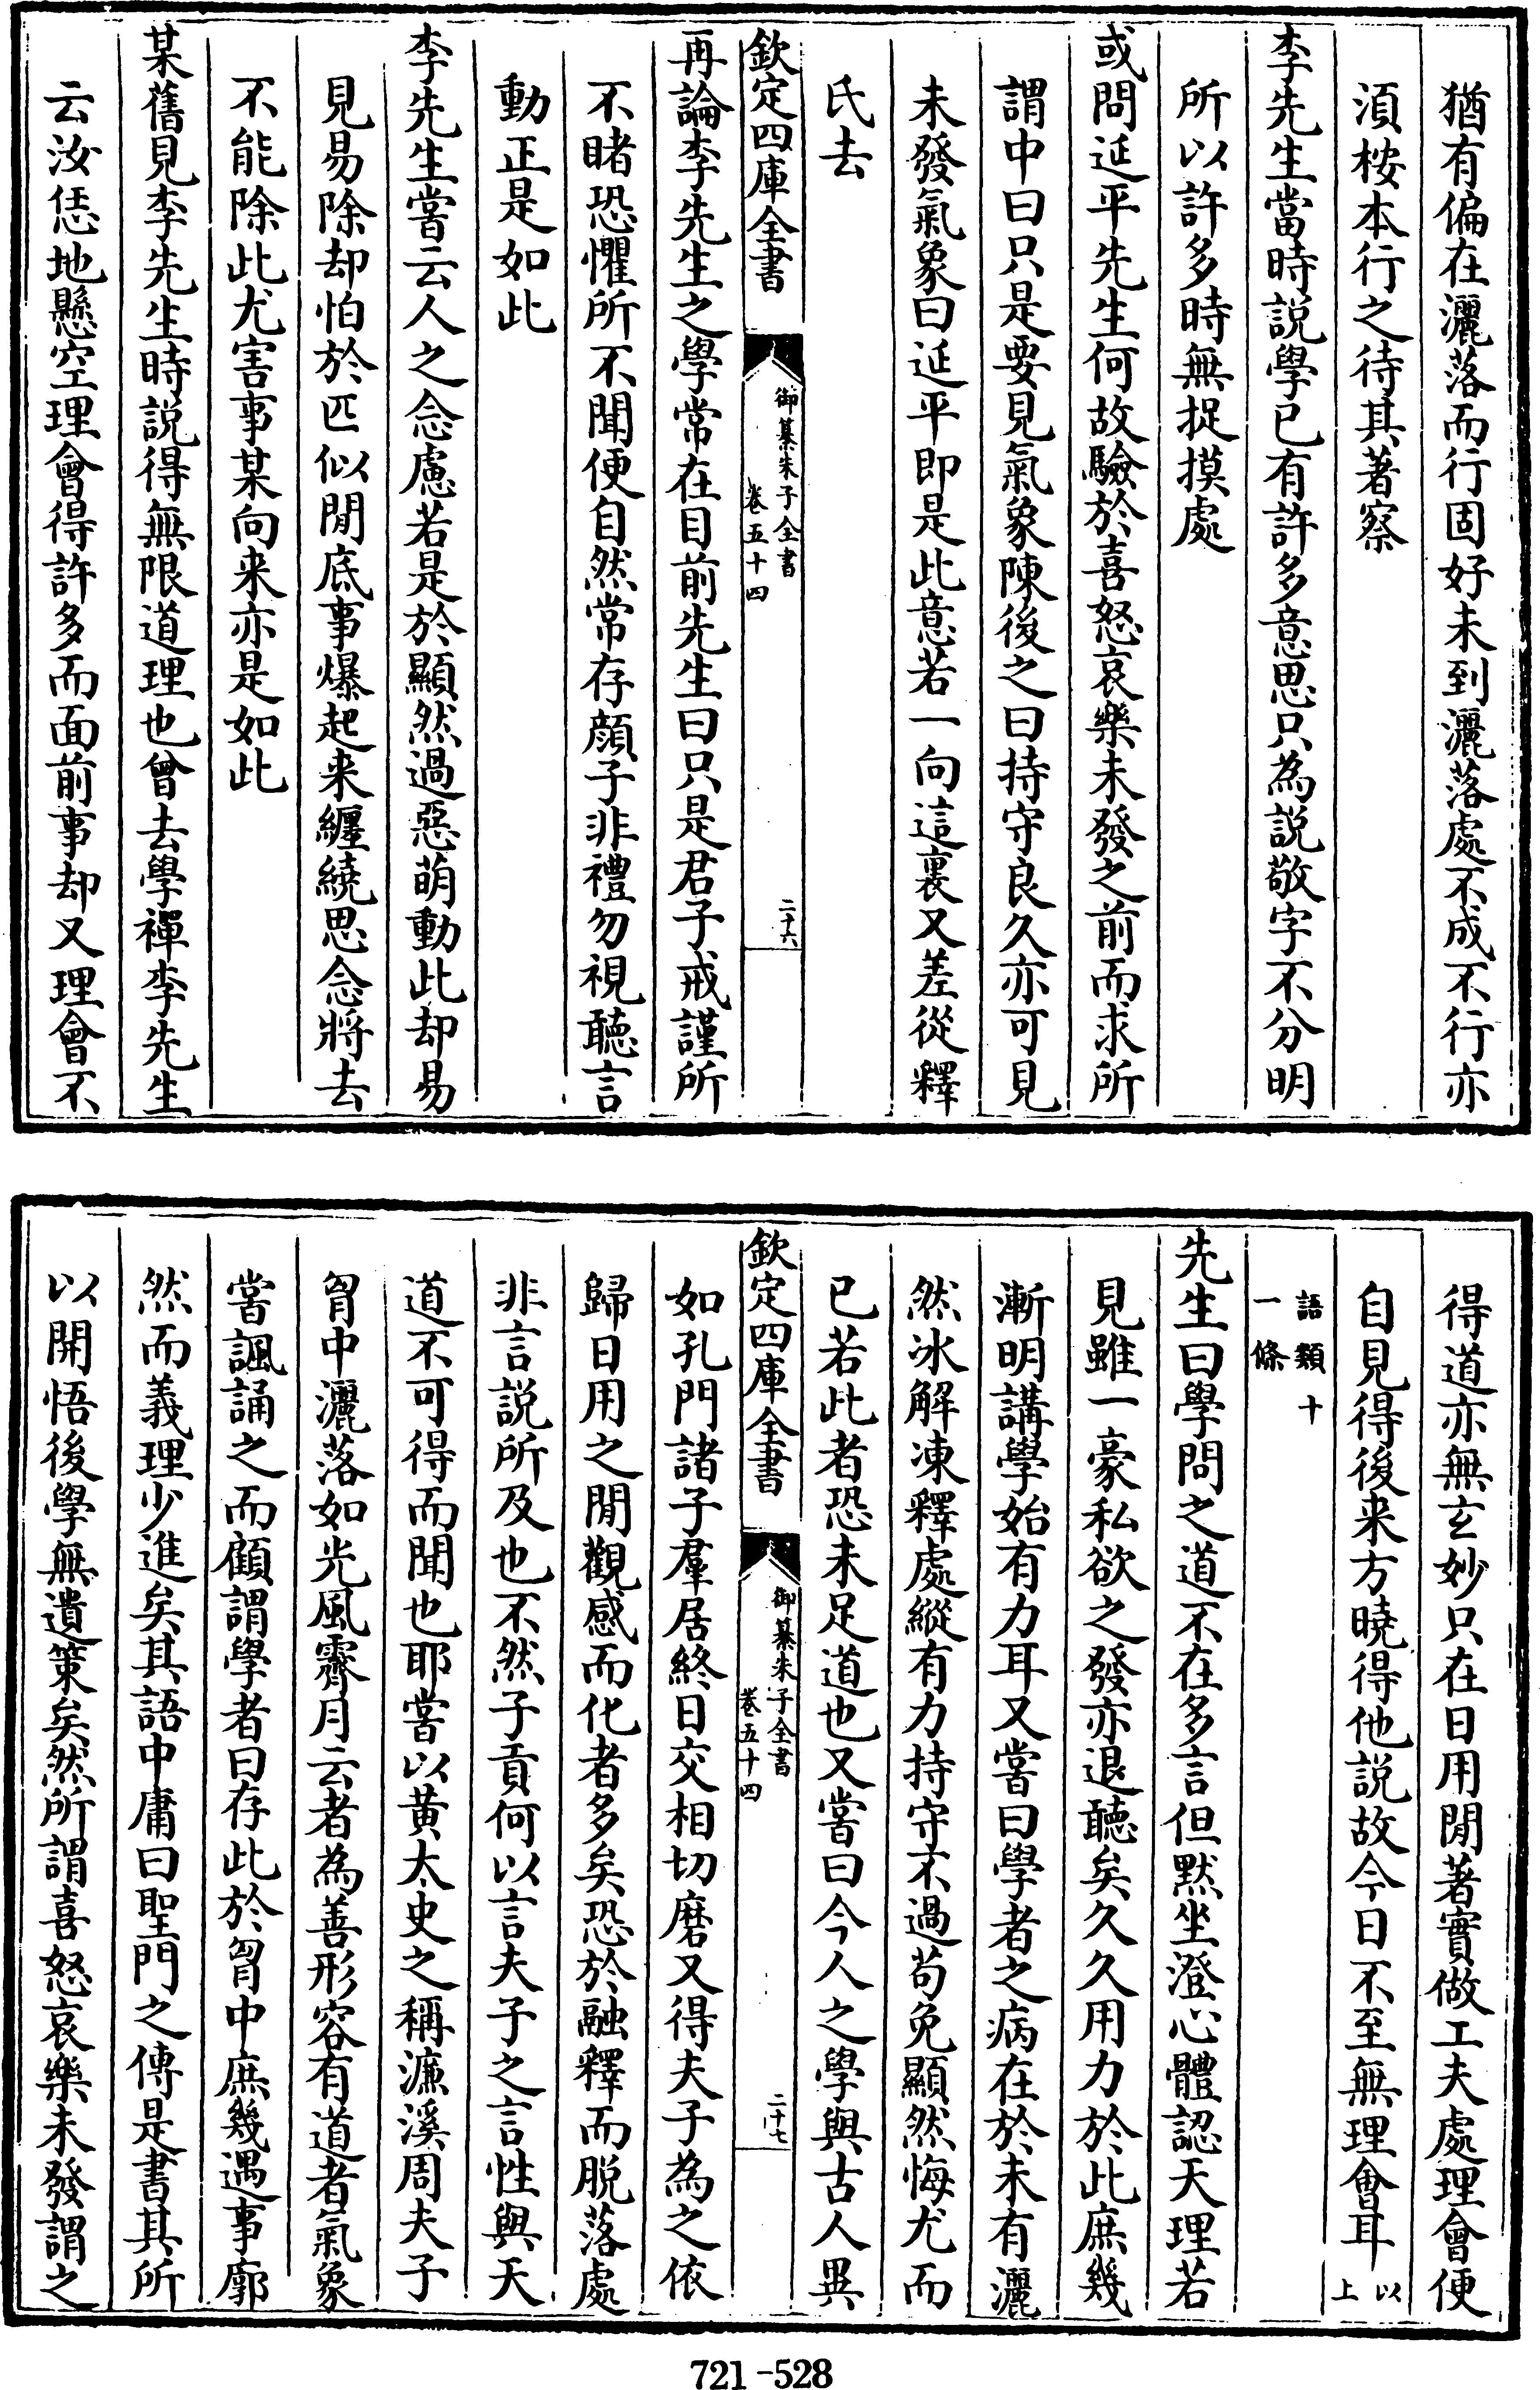 猶有偏在灑落而行固好未到灑落處不成不行亦
湏桉本行之待其著察
李先生當時説學已有許多意思只為説敬字不分明
所以許多時無捉摸處
或問延平先生何故驗於喜怒哀樂未發之前而求所
謂中曰只是要見氣象陳後之曰持守良久亦可見
未發氣象曰延平即是此意若一向這裏又差從釋
氏去
欽定四庫全書
御纂朱子全書
卷五十四
二十六
再論李先生之學常在目前先生曰只是君子戒謹所
不睹恐懼所不聞便自然常存顔子非禮勿視聽言
動正是如此
李先生嘗云人之念慮若是於顯然過惡萌動此却易
見易除却怕於匹似閒底事爆起来纏繞思念將去
不能除此尤害事某向来亦是如此
某舊見李先生時説得無限道理也曾去學禪李先生
云汝恁地懸空理會得許多而面前事却又理會不
得道亦無玄妙只在日用閒著實做工夫處理會便
自見得後来方曉得他説故今日不至無理會耳以上
語類十
一條
先生曰學問之道不在多言但黙坐澄心體認天理若
見雖一豪私欲之發亦退聽矣久久用力於此庶幾
漸明講學始有力耳又嘗曰學者之病在於未有灑
然冰解凍釋處縱有力持守不過苟免顯然悔尤而
已若此者恐未足道也又嘗曰今人之學與古人異
欽定四庫全書
御纂朱子全書
卷五十四
二十七
如孔門諸子羣居終日交相切磨又得夫子為之依
歸日用之閒觀感而化者多矣恐於融釋而脱落處
非言説所及也不然子貢何以言夫子之言性與天
道不可得而聞也耶嘗以黄太史之稱濂溪周夫子
胷中灑落如光風霽月云者為善形容有道者氣象
嘗諷誦之而顧謂學者曰存此於胷中庶幾遇事廓
然而義理少進矣其語中庸曰聖門之傳是書其所
以開悟後學無遺策矣然所謂喜怒哀樂未發謂之
721-528